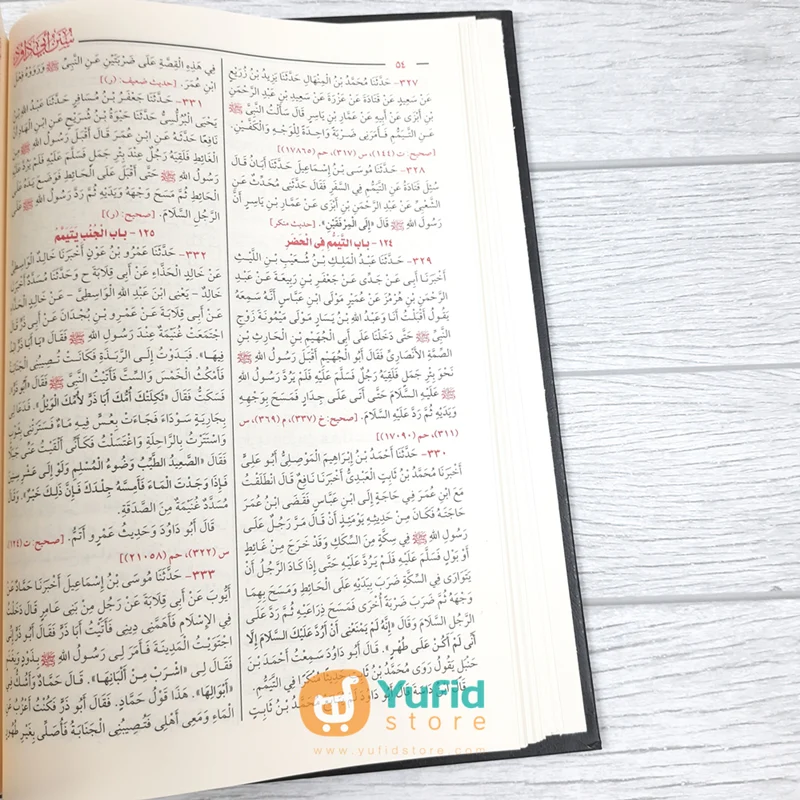 ٥٤
سنن أبي داود
٣٢٧- حَدَّثَنَا مُحَمَّدُ بْنُ الْمِنْهَالِ حَدَّثَنَا يَزِيدُ بْنُ زُرَيْعٍ
عَنْ سَعِيدٍ عَنْ قَتَادَةَ عَنْ عَزْرَةَ عَنْ سَعِيدِ بْنِ عَبْدِ الرَّحْمَنِ
بْنِ أَبْزَى عَنْ أَبِيهِ عَنْ عَمَّارِ بْنِ يَاسِرٍ قَالَ سَأَلْتُ النَّبِيَّ ﷺ
عَنِ التَّيَمُّمِ فَأَمَرَنِى ضَرْبَةً وَاحِدَةً لِلْوَجْهِ وَالْكَفَّيْنِ.
[صحيح: ت (١٤٤)، س (٣١٧)، حم (١٧٨٦٥)]
٣٢٨- حَدَّثَنَا مُوسَى بْنُ إِسْمَاعِيلَ حَدَّثَنَا أَبَانُ قَالَ
سُئِلَ قَتَادَةُ عَنِ التَّيَمُّمِ فِى السَّفَرِ فَقَالَ حَدَّثَنِى مُحَدِّثٌ عَنِ
الشَّعْبِىِّ عَنْ عَبْدِ الرَّحْمَنِ بْنِ أَبْزَى عَنْ عَمَّارِ بْنِ يَاسِرٍ أَنَّ
رَسُولَ اللهِ ﷺ قَالَ «إِلَى الْمِرْفَقَيْنِ». [حديث منكر]
١٢٤ - باب التَّيَمُّمِ فِى الْحَضَرِ
٣٢٩- حَدَّثَنَا عَبْدُ الْمَلِكِ بْنُ شُعَيْبِ بْنِ اللَّيْثِ
أَخْبَرَنَا أَبِى عَنْ جَدِّى عَنْ جَعْفَرِ بْنِ رَبِيعَةَ عَنْ عَبْدِ
الرَّحْمَنِ بْنِ هُرْمُزَ عَنْ عُمَيْرٍ مَوْلَى ابْنِ عَبَّاسٍ أَنَّهُ سَمِعَهُ
يَقُولُ أَقْبَلْتُ أَنَا وَعَبْدُ اللهِ بْنُ يَسَارٍ مَوْلَى مَيْمُونَةَ زَوْجِ
النَّبِىِّ ﷺ حَتَّى دَخَلْنَا عَلَى أَبِى الْجُهَيْمِ بْنِ الْحَارِثِ بْنِ
الصِّمَّةِ الأَنْصَارِىِّ فَقَالَ أَبُو الْجُهَيْمِ أَقْبَلَ رَسُولُ اللهِ ﷺ
نَحْوَ بِئْرِ جَمَلٍ فَلَقِيَهُ رَجُلٌ فَسَلَّمَ عَلَيْهِ فَلَمْ يَرُدَّ رَسُولُ اللهِ
ﷺ عَلَيْهِ السَّلَامَ حَتَّى أَتَى عَلَى جِدَارٍ فَمَسَحَ بِوَجْهِهِ
وَيَدَيْهِ ثُمَّ رَدَّ عَلَيْهِ السَّلَامَ. [صحيح: خ (٣٣٧)، م (٣٦٩)، س
(٣١١)، حم (١٧٠٩٠)]
٣٣٠- حَدَّثَنَا أَحْمَدُ بْنُ إِبْرَاهِيمَ الْمَوْصِلِىُّ أَبُو عَلِىٍّ
أَخْبَرَنَا مُحَمَّدُ بْنُ ثَابِتٍ الْعَبْدِىُّ أَخْبَرَنَا نَافِعٌ قَالَ انْطَلَقْتُ
مَعَ ابْنِ عُمَرَ فِى حَاجَةٍ إِلَى ابْنِ عَبَّاسٍ فَقَضَى ابْنُ عُمَرَ
حَاجَتَهُ فَكَانَ مِنْ حَدِيثِهِ يَوْمَئِذٍ أَنْ قَالَ مَرَّ رَجُلٌ عَلَى
رَسُولِ اللهِ ﷺ فِى سِكَّةٍ مِنَ السِّكَكِ وَقَدْ خَرَجَ مِنْ غَائِطٍ
أَوْ بَوْلٍ فَسَلَّمَ عَلَيْهِ فَلَمْ يَرُدَّ عَلَيْهِ حَتَّى إِذَا كَادَ الرَّجُلُ أَنْ
يَتَوَارَى فِى السِّكَّةِ ضَرَبَ بِيَدَيْهِ عَلَى الْحَائِطِ وَمَسَحَ بِهِمَا
وَجْهَهُ ثُمَّ ضَرَبَ ضَرْبَةً أُخْرَى فَمَسَحَ ذِرَاعَيْهِ ثُمَّ رَدَّ عَلَى
الرَّجُلِ السَّلَامَ وَقَالَ «إِنَّهُ لَمْ يَمْنَعْنِى أَنْ أَرُدَّ عَلَيْكَ السَّلَامَ إِلَّا
أَنِّى لَمْ أَكُنْ عَلَى طُهْرٍ». قَالَ أَبُو دَاوُدَ سَمِعْتُ أَحْمَدَ بْنَ
حَنْبَلٍ يَقُولُ رَوَى مُحَمَّدُ بْنُ ثَابِتٍ حَدِيثًا مُنْكَرًا فِى التَّيَمُّمِ.
قَالَ ابْنُ دَاسَةَ قَالَ أَبُو دَاوُدَ لَمْ يُتَابَعْ مُحَمَّدُ بْنُ ثَابِتٍ
فِى هَذِهِ الْقِصَّةِ عَلَى ضَرْبَتَيْنِ عَنِ النَّبِىِّ ﷺ وَرَوَوْهُ فِعْلَ
ابْنِ عُمَرَ. [حديث ضعيف: (ر)]
٣٣١- حَدَّثَنَا جَعْفَرُ بْنُ مُسَافِرٍ حَدَّثَنَا عَبْدُ اللهِ بْنُ
يَحْيَى الْبُرُلُّسِىُّ حَدَّثَنَا حَيْوَةُ بْنُ شُرَيْحٍ عَنِ ابْنِ الْهَادِ أَنَّ
نَافِعًا حَدَّثَهُ عَنِ ابْنِ عُمَرَ قَالَ أَقْبَلَ رَسُولُ اللهِ ﷺ مِنَ
الْغَائِطِ فَلَقِيَهُ رَجُلٌ عِنْدَ بِئْرِ جَمَلٍ فَسَلَّمَ عَلَيْهِ فَلَمْ يَرُدَّ عَلَيْهِ
رَسُولُ اللهِ ﷺ حَتَّى أَقْبَلَ عَلَى الْحَائِطِ فَوَضَعَ يَدَهُ عَلَى
الْحَائِطِ ثُمَّ مَسَحَ وَجْهَهُ وَيَدَيْهِ ثُمَّ رَدَّ رَسُولُ اللهِ ﷺ عَلَى
الرَّجُلِ السَّلَامَ. [صحيح: (ر)]
١٢٥ - باب الْجُنُبِ يَتَيَمَّمُ
٣٣٢- حَدَّثَنَا عَمْرُو بْنُ عَوْنٍ أَخْبَرَنَا خَالِدٌ الْوَاسِطِىُّ
عَنْ خَالِدٍ الْحَذَّاءِ عَنْ أَبِى قِلَابَةَ ح وَحَدَّثَنَا مُسَدَّدٌ أَخْبَرَنَا
خَالِدٌ - يَعْنِى ابْنَ عَبْدِ اللهِ الْوَاسِطِىَّ - عَنْ خَالِدٍ الْحَذَّاءِ
عَنْ أَبِى قِلَابَةَ عَنْ عَمْرِو بْنِ بُجْدَانَ عَنْ أَبِى ذَرٍّ قَالَ
اجْتَمَعَتْ غُنَيْمَةٌ عِنْدَ رَسُولِ اللهِ ﷺ فَقَالَ «يَا أَبَا ذَرٍّ ابْدُ
فِيهَا». فَبَدَوْتُ إِلَى الرَّبَذَةِ فَكَانَتْ تُصِيبُنِى الْجَنَابَةُ
فَأَمْكُثُ الْخَمْسَ وَالسِّتَّ فَأَتَيْتُ النَّبِىَّ ﷺ فَقَالَ «أَبُو ذَرٍّ».
فَسَكَتُّ فَقَالَ «ثَكِلَتْكَ أُمُّكَ أَبَا ذَرٍّ لأُمِّكَ الْوَيْلُ». فَدَعَا لِى
بِجَارِيَةٍ سَوْدَاءَ فَجَاءَتْ بِعُسٍّ فِيهِ مَاءٌ فَسَتَرَتْنِى بِثَوْبٍ
وَاسْتَتَرْتُ بِالرَّاحِلَةِ وَاغْتَسَلْتُ فَكَأَنِّى أَلْقَيْتُ عَنِّى جَبَلًا
فَقَالَ «الصَّعِيدُ الطَّيِّبُ وَضُوءُ الْمُسْلِمِ وَلَوْ إِلَى عَشْرِ سِنِينَ
فَإِذَا وَجَدْتَ الْمَاءَ فَأَمِسَّهُ جِلْدَكَ فَإِنَّ ذَلِكَ خَيْرٌ». وَقَالَ
مُسَدَّدٌ غُنَيْمَةٌ مِنَ الصَّدَقَةِ.
قَالَ أَبُو دَاوُدَ وَحَدِيثُ عَمْرٍو أَتَمُّ. [صحيح: ت (١٢٤)،
س (٣٢٢)، حم (٢١٠٥٨)]
٣٣٣- حَدَّثَنَا مُوسَى بْنُ إِسْمَاعِيلَ أَخْبَرَنَا حَمَّادٌ عَنْ
أَيُّوبَ عَنْ أَبِى قِلَابَةَ عَنْ رَجُلٍ مِنْ بَنِى عَامِرٍ قَالَ دَخَلْتُ
فِى الإِسْلَامِ فَأَهَمَّنِى دِينِى فَأَتَيْتُ أَبَا ذَرٍّ فَقَالَ أَبُو ذَرٍّ إِنِّى
اجْتَوَيْتُ الْمَدِينَةَ فَأَمَرَ لِى رَسُولُ اللهِ ﷺ بِذَوْدٍ وَبِغَنَمٍ
فَقَالَ لِى «اشْرَبْ مِنْ أَلْبَانِهَا». قَالَ حَمَّادٌ وَأَشُكُّ فِى
«أَبْوَالِهَا». هَذَا قَوْلُ حَمَّادٍ. فَقَالَ أَبُو ذَرٍّ فَكُنْتُ أَعْزُبُ عَنِ
الْمَاءِ وَمَعِى أَهْلِى فَتُصِيبُنِى الْجَنَابَةُ فَأُصَلِّى بِغَيْرِ طُهُورٍ
Yufid
store
www.yufidstore.com